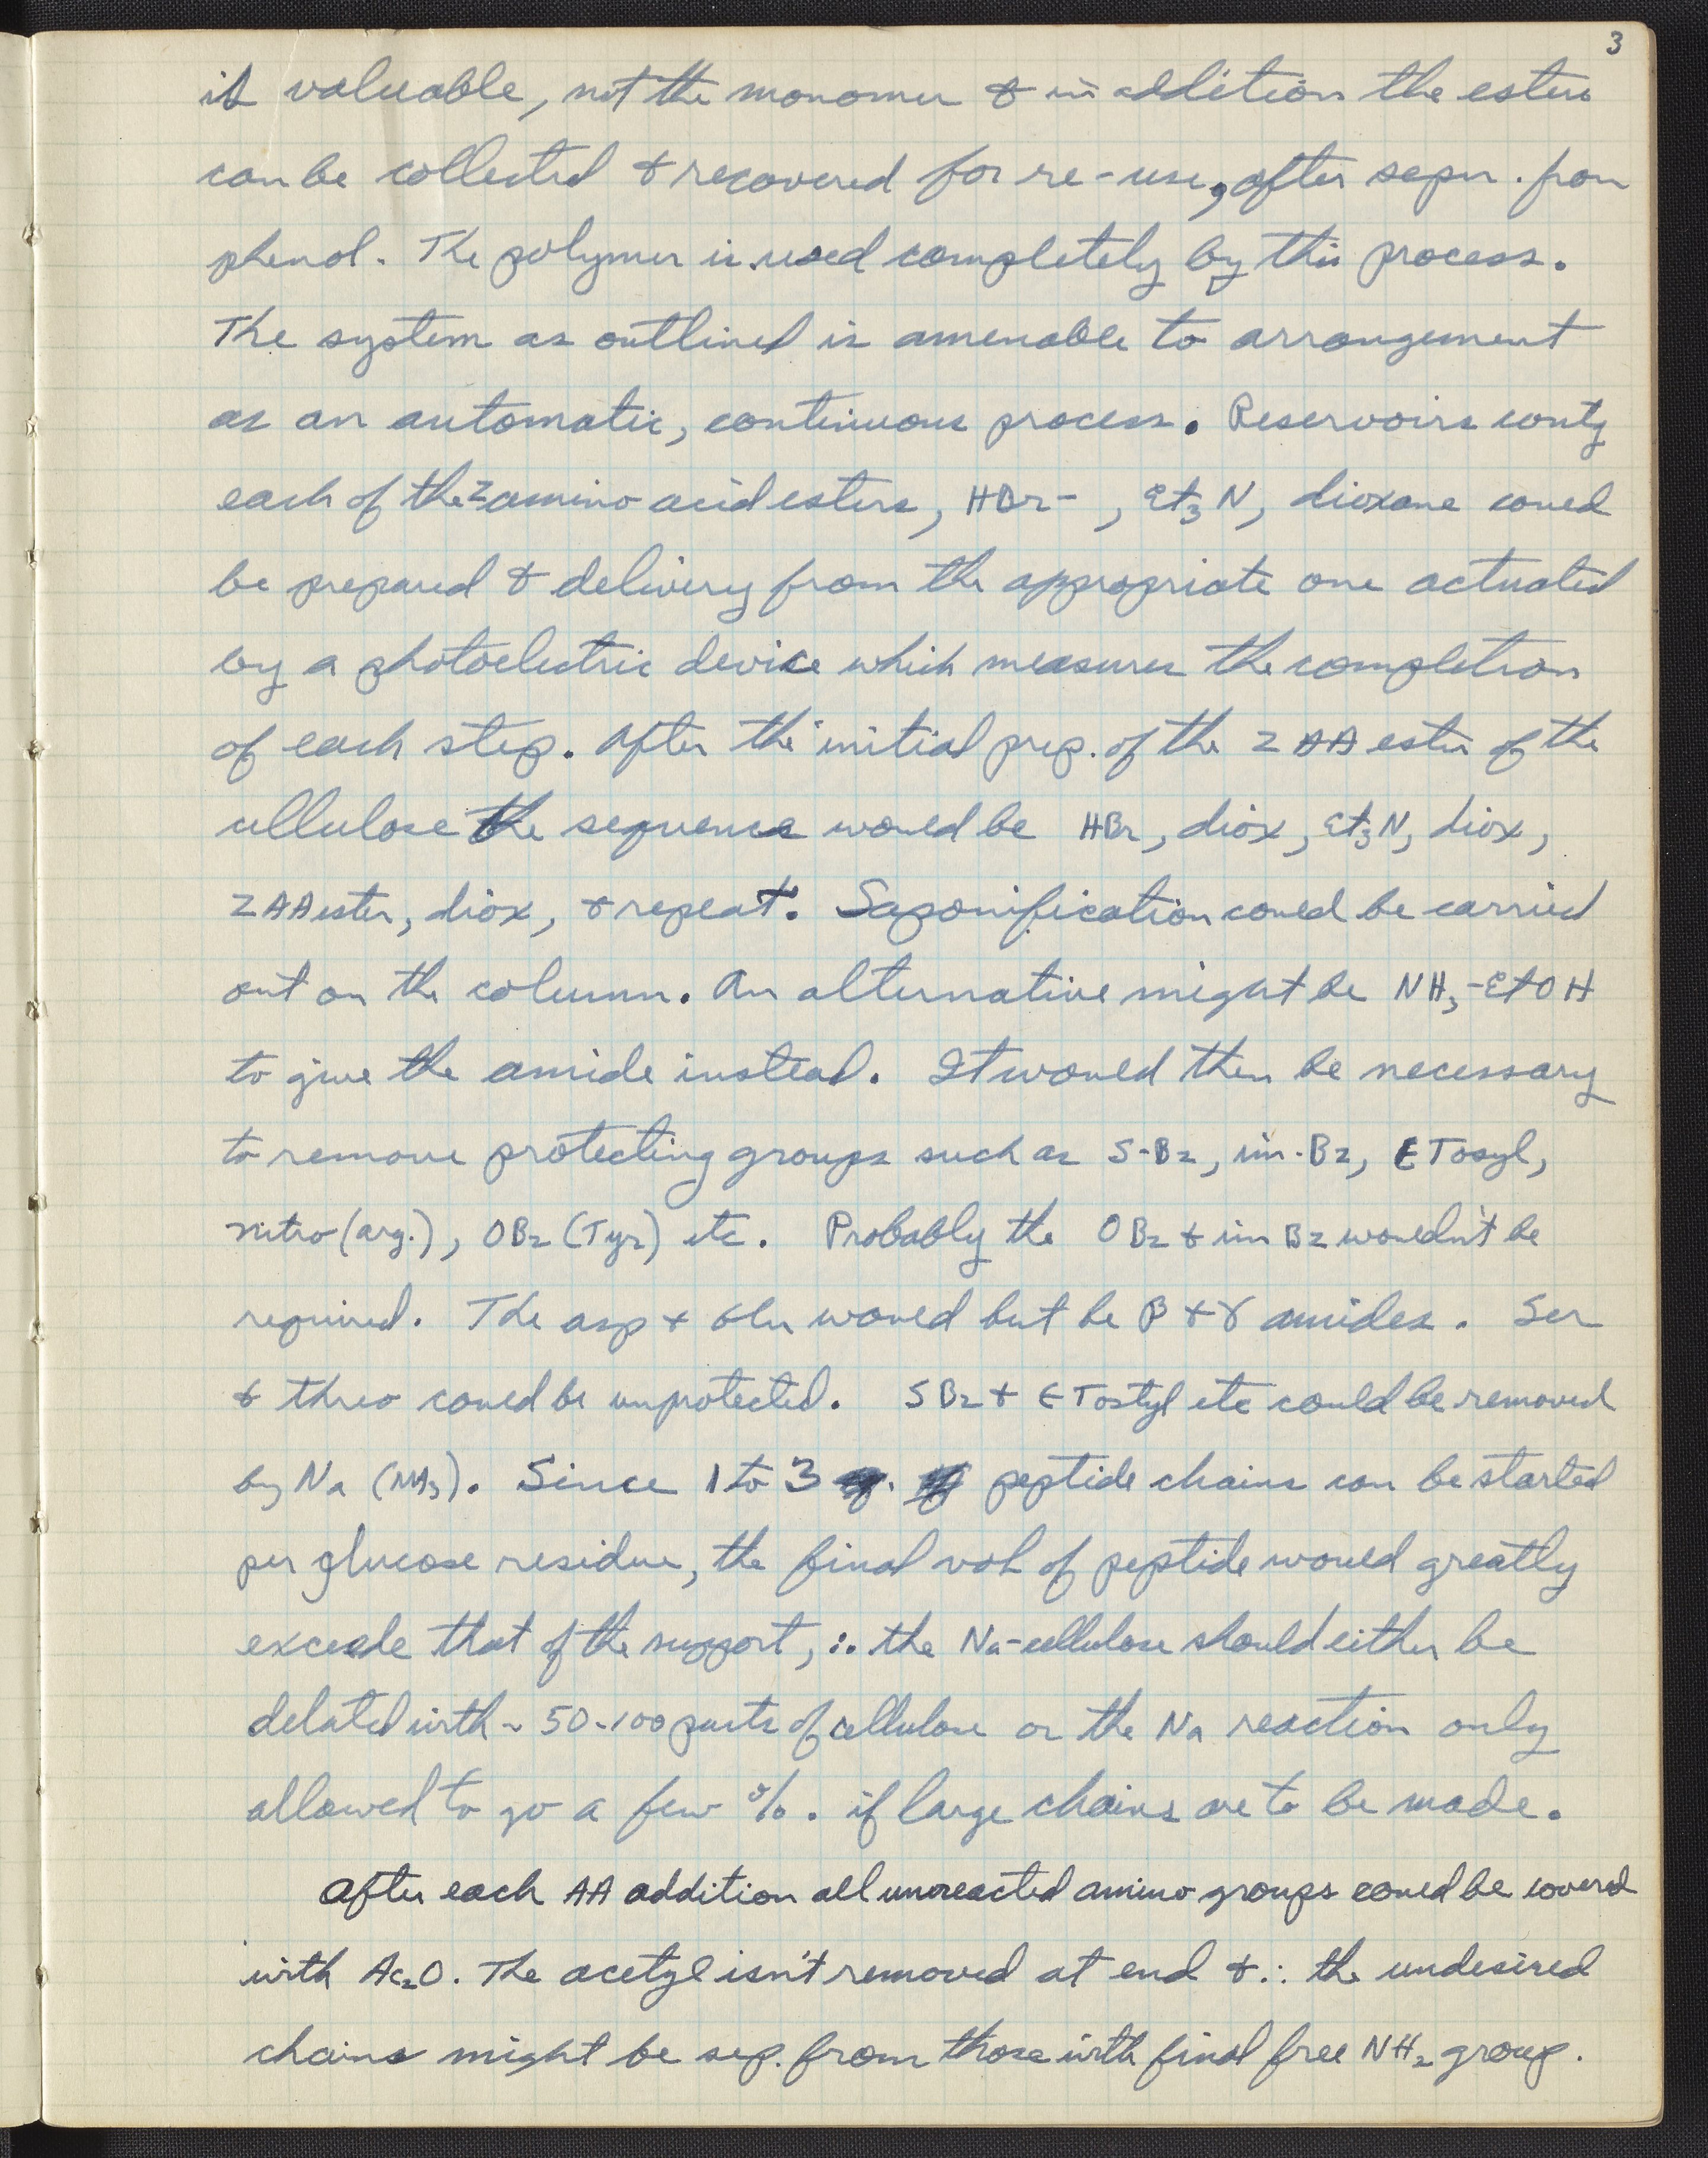 3
is valuable, not the monomer & in addition the esters
can be collected & recovered for re-use, after sepn. from
phenol. The polymer is used completely by this process.
The system as outlined is amenable to arrangement
as an automatic, continuous process. Reservoirs contg
each of the Z amino acid esters, HBr- , Et₃N, dioxane could
be prepared & delivery from the appropriate one actuated
by a photoelectric device which measures the completion
of each step. After the initial prep. of the Z AA ester of the
cellulose the sequence would be HBr, diox, Et₃N, diox,
Z AA ester, diox, & repeat. Saponification could be carried
out on the column. An alternative might be NH₃-EtOH
to give the amide instead. It would then be necessary
to remove protecting groups such as S-Bz, im-Bz, ε Tosyl,
nitro (arg.), OBz (Tyr) etc. Probably the OBz & im Bz wouldn't be
required. The asp + Glu would but be β + γ amides. Ser
& threo could be unprotected. SBz + ε Tostyl etc could be removed
by Na (NH₃). Since 1 to 3 peptide chains can be started
per glucose residue, the final vol of peptide would greatly
excede that of the support, ∴ the Na-cellulose should either be
deluted with ~ 50-100 parts of cellulose or the Na reaction only
allowed to go a few %. if large chains are to be made.
After each AA addition all unreacted amino groups could be covered
with Ac₂O. The acetyl isn't removed at end & ∴ the undesired
chains might be sep. from those with final free NH₂ group.